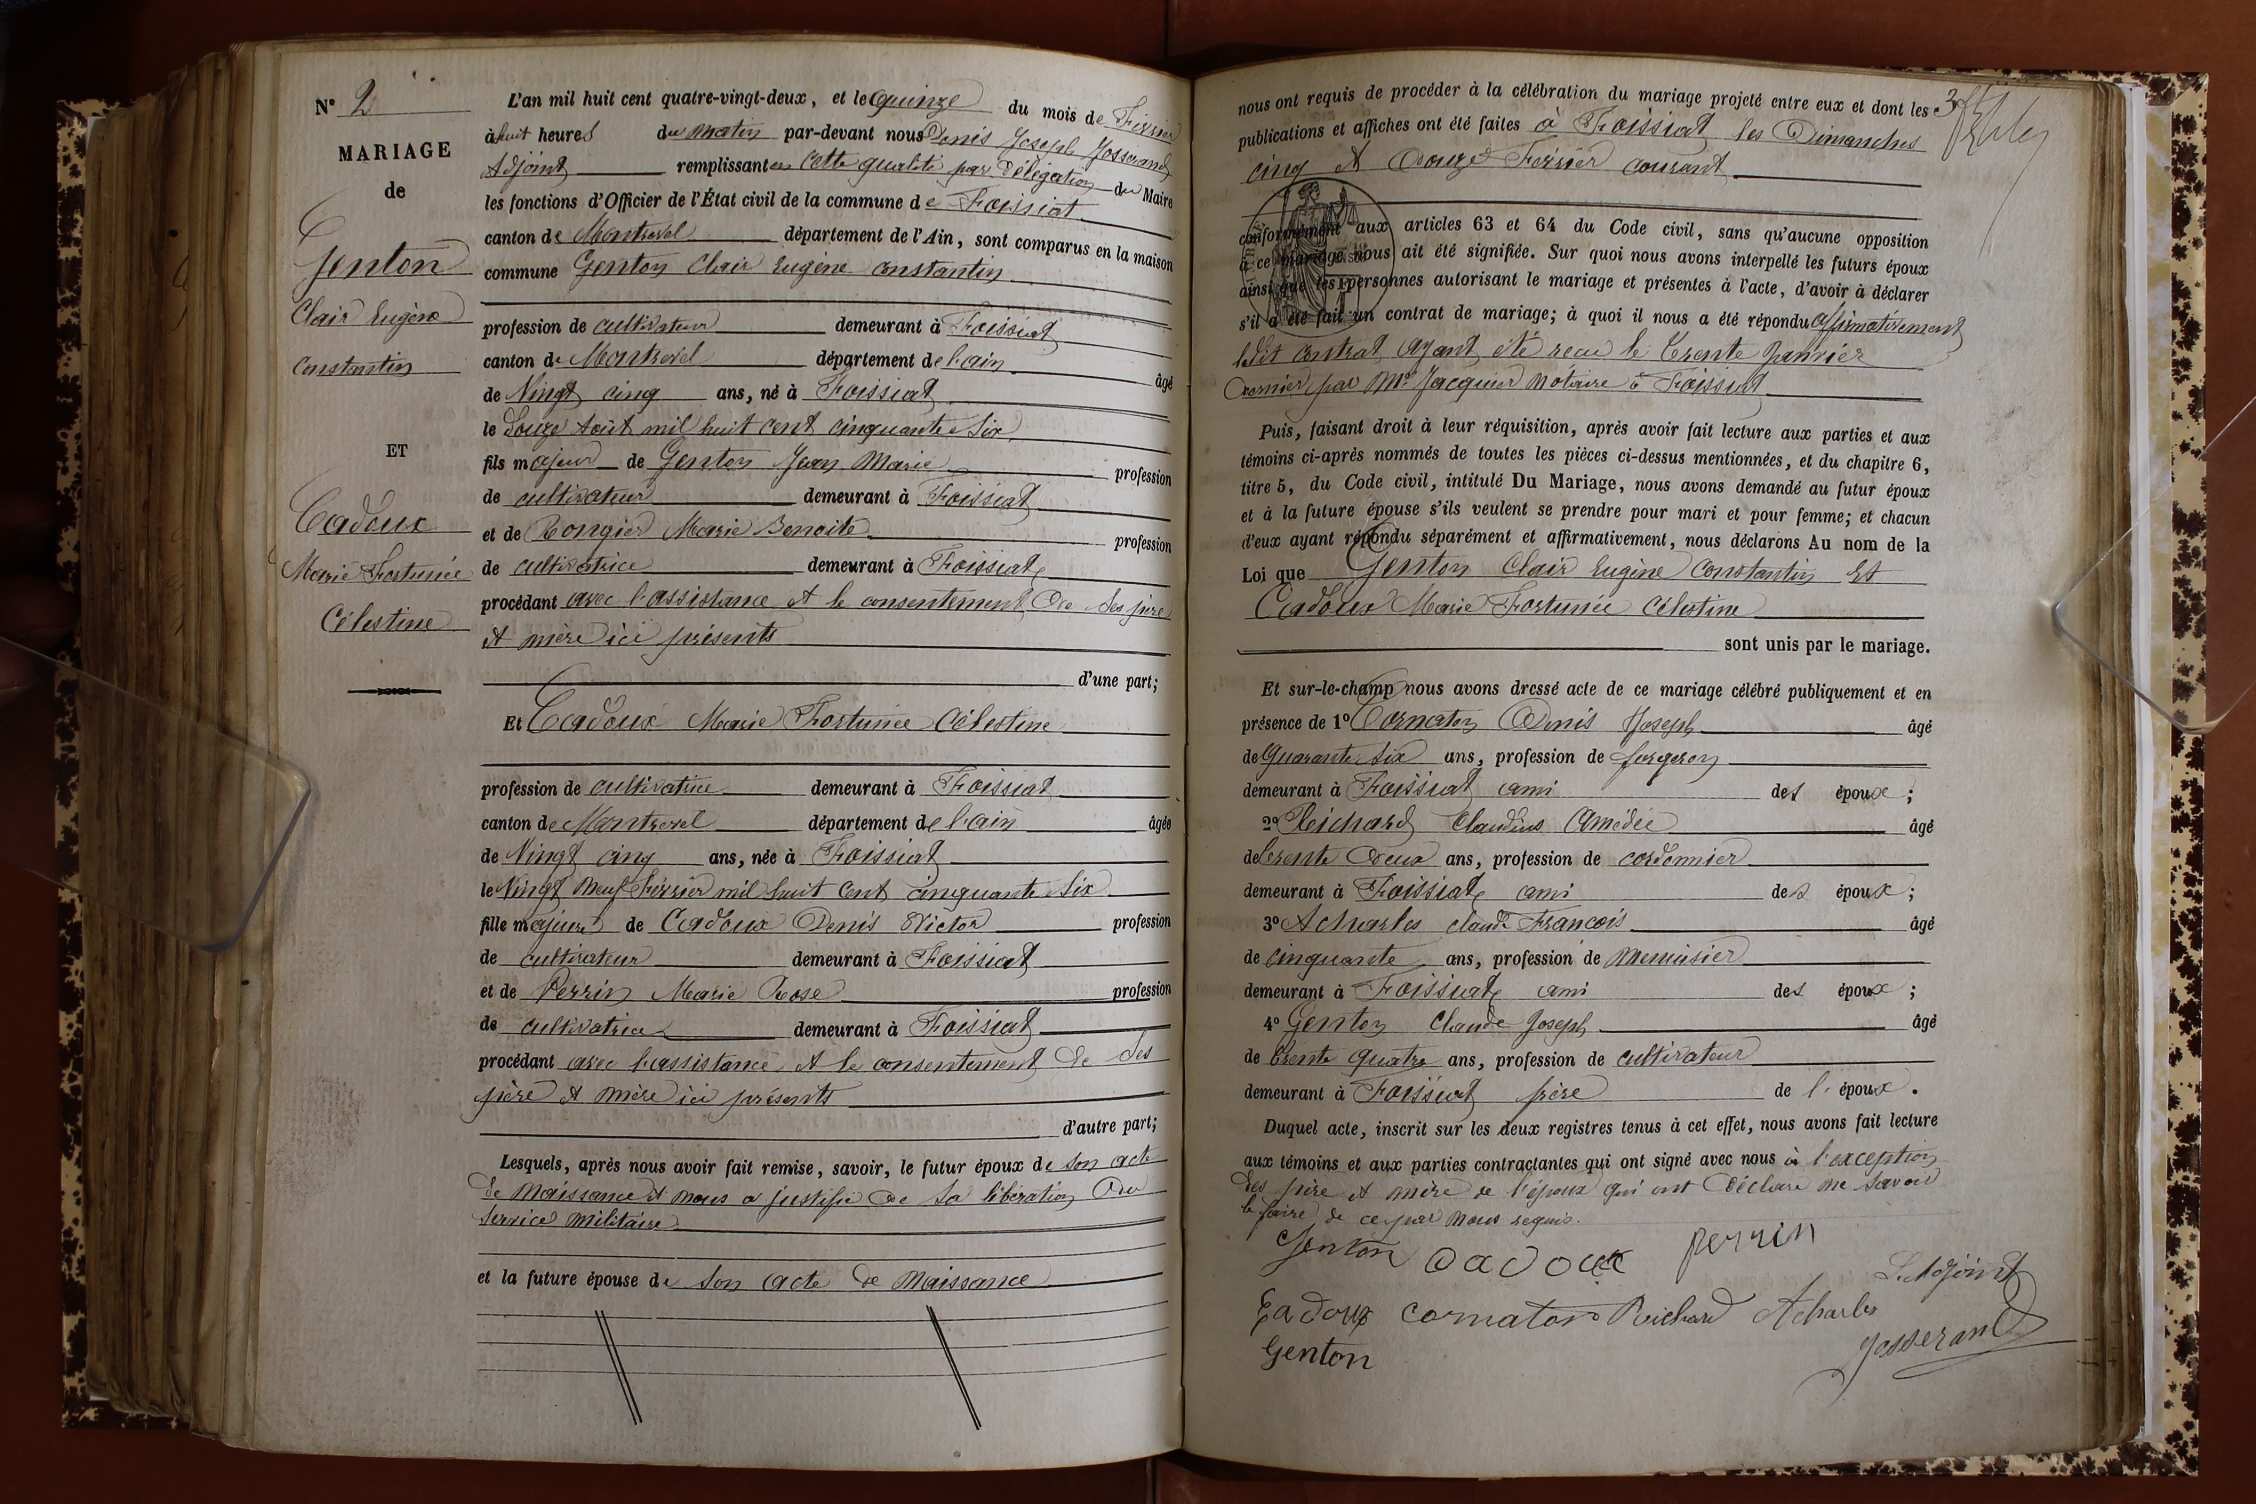 N° 2
MARIAGE
de
Genton
Clair Eugène
Constantin
ET
Cadoux
Marie Fortunée
Célestine
L'an mil huit cent quatre-vingt-deux, et le quinze du mois de Février
à huit heures du matin par-devant nous Denis Joseph Josserand
Adjoint remplissant en cette qualité par délégation du Maire
les fonctions d'Officier de l'État civil de la commune de Foissiat
canton de Montrevel département de l'Ain, sont comparus en la maison
commune Genton Clair Eugène Constantin
profession de cultivateur demeurant à Foissiat
canton de Montrevel département de l'ain âgé
de Vingt cinq ans, né à Foissiat
le douze Août mil huit cent cinquante Six
fils majeur de Genton Jean Marie profession
de cultivateur demeurant à Foissiat
et de Rongier Marie Benoite profession
de cultivatrice demeurant à Foissiat
procédant avec l'assistance et le consentement de ses père
et mère ici présents
d'une part;
Et Cadoux Marie Fortunée Célestine
profession de cultivatrice demeurant à Foissiat
canton de Montrevel département de l'ain âgée
de Vingt cinq ans, née à Foissiat
le Vingt Neuf Février mil huit Cent cinquante Six
fille majeure de Cadoux Denis Victor profession
de cultivateur demeurant à Foissiat
et de Perrin Marie Rose profession
de cultivatrice demeurant à Foissiat
procédant avec l'assistance et le consentement de ses
père et mère ici présents
d'autre part;
Lesquels, après nous avoir fait remise, savoir, le futur époux de son acte
de Naissance et nous a justifié de sa libération du
Service militaire
et la future épouse de son acte de Naissance
3
nous ont requis de procéder à la célébration du mariage projeté entre eux et dont les
publications et affiches ont été faites à Foissiat les Dimanches
cinq et Douze Février courant
conformément aux articles 63 et 64 du Code civil, sans qu'aucune opposition
à ce mariage nous ait été signifiée. Sur quoi nous avons interpellé les futurs époux
ainsi que les personnes autorisant le mariage et présentes à l'acte, d'avoir à déclarer
s'il a été fait un contrat de mariage; à quoi il nous a été répondu affirmativement
ledit contrat ayant été recu le trente Janvier
dernier par Me Jacquier Notaire à Foissiat
Puis, faisant droit à leur réquisition, après avoir fait lecture aux parties et aux
témoins ci-après nommés de toutes les pièces ci-dessus mentionnées, et du chapitre 6,
titre 5, du Code civil, intitulé Du Mariage, nous avons demandé au futur époux
et à la future épouse s'ils veulent se prendre pour mari et pour femme; et chacun
d'eux ayant répondu séparément et affirmativement, nous déclarons Au nom de la
Loi que Genton Clair Eugène Constantin Et
Cadoux Marie Fortunée Célestine
sont unis par le mariage.
Et sur-le-champ nous avons dressé acte de ce mariage célébré publiquement et en
présence de 1° Cornaton Denis Joseph âgé
de Quarante Six ans, profession de forgeron
demeurant à Foissiat ami des époux ;
2° Reichard Claudius Amédée âgé
de trente Deux ans, profession de cordonnier
demeurant à Foissiat ami des époux ;
3° Acharles claude François âgé
de cinquante ans, profession de Menuisier
demeurant à Foissiat ami des époux ;
4° Genton Claude Joseph âgé
de trente quatre ans, profession de cultivateur
demeurant à Foissiat frère de l'époux .
Duquel acte, inscrit sur les deux registres tenus à cet effet, nous avons fait lecture
aux témoins et aux parties contractantes qui ont signé avec nous à l'exception
des père et mère de l'époux qui ont déclaré ne savoir
le faire de ce par Nous requis.
Genton Cadoux perrin
L'Adjoint
Cadoux cornaton Reichard Acharles
Josserand
Genton